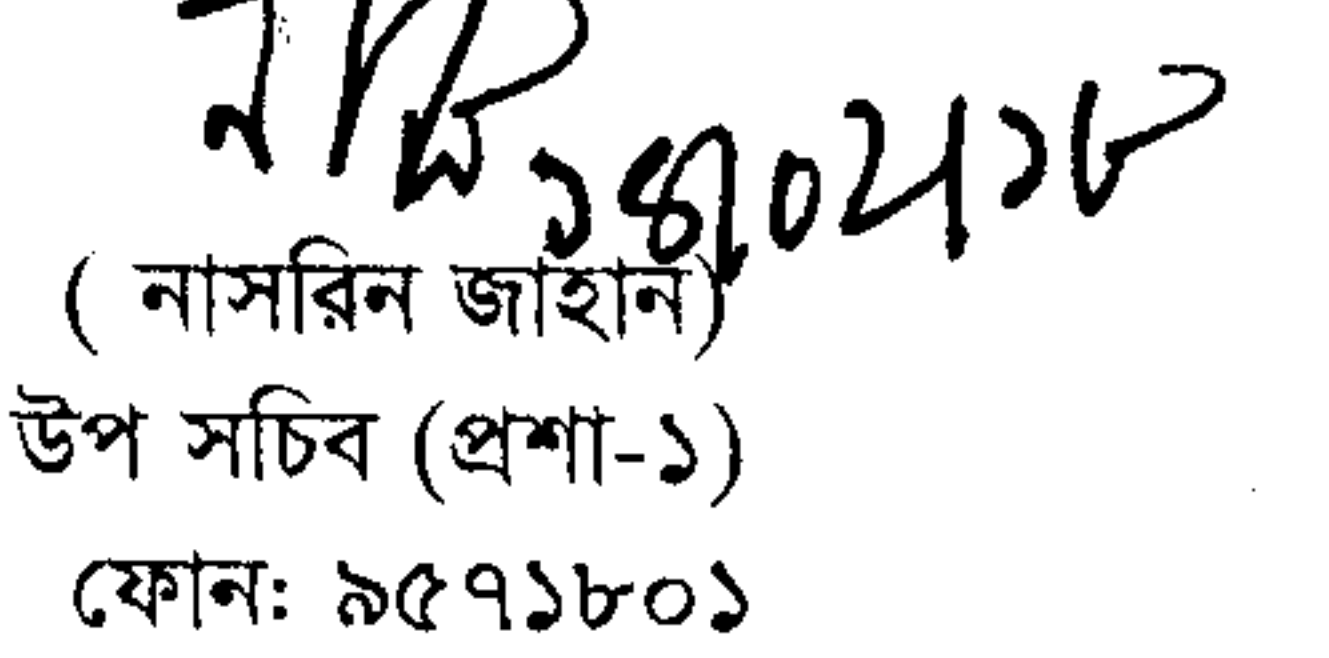 ১৪/০২/১৮
( নাসরিন জাহান)
উপ সচিব (প্রশা-১)
ফোন: ৯৫৭১৮০১